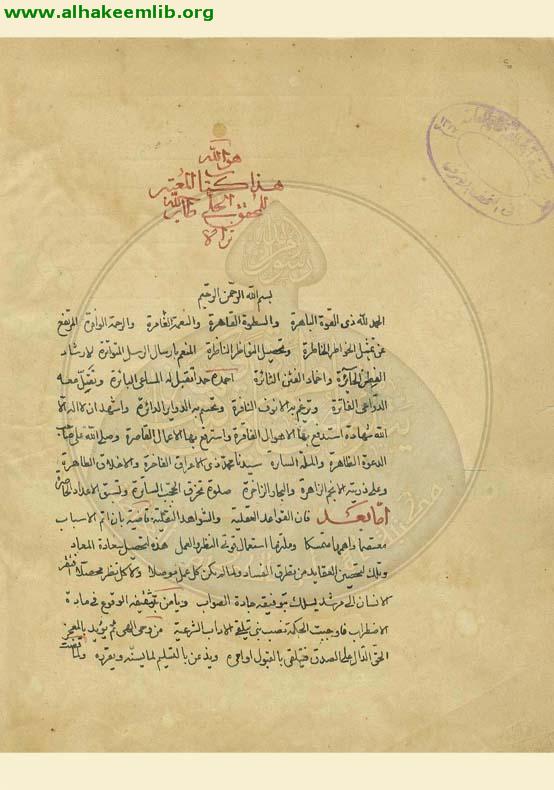 www.alhakeemlib.org
هو الله
هذا كتاب المعتبر
للمحقق الحلي طاب الله
ثراه
بسم الله الرحمن الرحيم
الحمد لله ذى القوة الباهرة والسطوة القاهرة والنعمة الغامرة والرحمة الوافرة المرتفع
عن تمثيل الخواطر الخاطرة وتحصيل النواظر الناظرة المنعم بارسال الرسل المتواترة لارشاد
الفطن الحائرة واخماد الفتن الثائرة احمده حمدا تقبل له المساعى البائرة وتقبل معه
الدواعى الفاترة وترغم به الانوف النافرة وتحسم به الدوابر الدائرة واشهد ان لا اله الا
الله شهادة استدفع بها الاهوال الفاقرة واسترفع بها الاعمال القاصرة وصلى الله على صاحب
الدعوة الظاهرة والملة السارة سيدنا محمد ذى الاعراق الفاخرة والاخلاق الطاهرة
وعلى ذريته الانجم الزاهرة والبحار الزاخرة صلوة تخرق الحجب الساترة وتسبق الاعداد الحاصرة
اما بعد فان القواعد العقلية والشواهد النقلية قاضية بان اتم الاسباب
معتصما واهمها متمسكا وملتزما استعمال قوتى النظر والعمل هذه لتحصيل سعادة المعاد
وتلك لتحصين العقايد من تطرق الفساد ولما لم يكن كل عمل موصلا ولا كل نظر محصلا افتقر
الانسان الى مرشد يسلك بتوفيقه جادة الصواب ويأمن بتوثيقه الوقوع فى مادة
الاضطراب فاوجبت الحكمة نصب نبى تتلقى الآداب الشرعية من وحى الهى ثم يؤيد بالمعجز
الحق الدال على الصدق فيتلقى بالقبول اوامره ويذعن بالتسليم لما يسنه ويقرره ولما